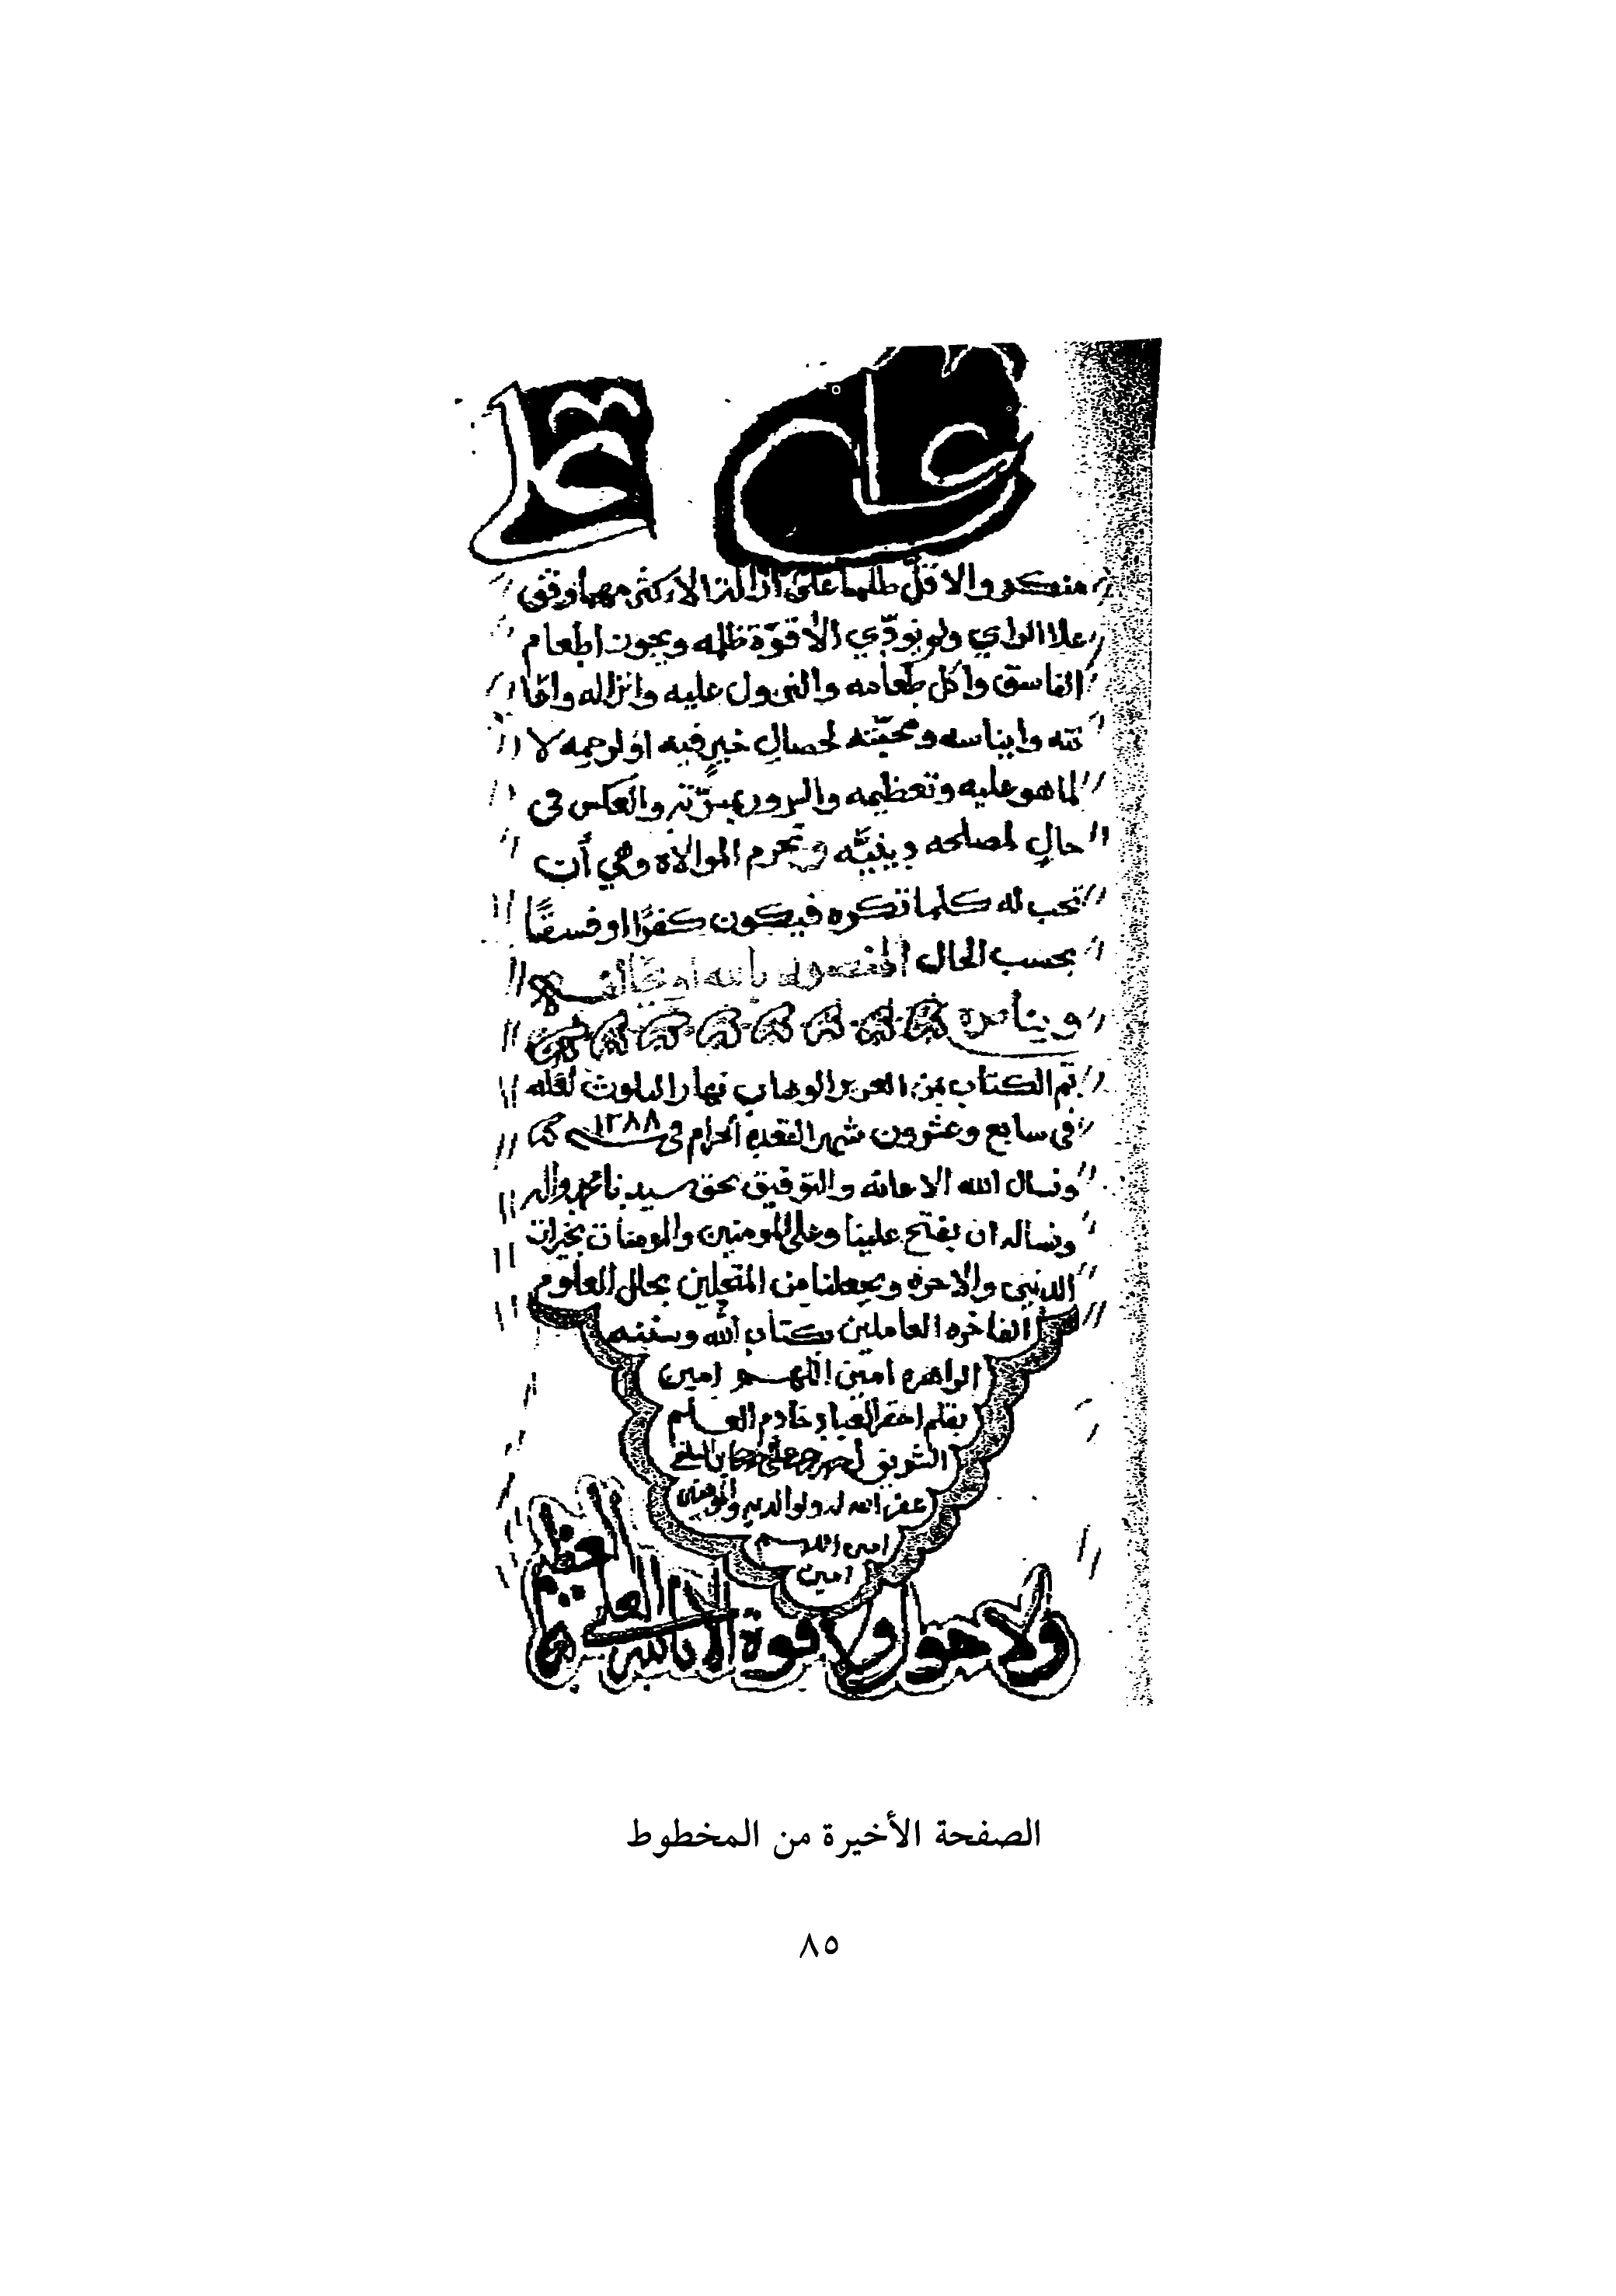 منكر والاقل ظلما على ازالة الاكثر مهما وقف
على الراي ولم يودّي الا قوّة ظلمه ويجوز اطعام
الفاسق واكل طعامه والنزول عليه وانزاله واعا
نته وايناسه ومحبّته لخصالِ خيرٍ فيه او لرحمه لا
لما هو عليه وتعظيمه والسرور بمسرّته والعكس في
حالٍ لمصلحه دينيّه وتحرم الموالاة وهي أن
تحب له كلما تحب وتكره له كلما تكره فيكون كفرًا او فسقًا
بحسب الحال
ويناصره
تم الكتاب من العزيز الوهاب نهار الثلوث لعله
في سابع وعشرون شهر القعده الحرام في ١٢٨٨
ونسال الله الاعانه والتوفيق بحق سيدنا محمد واله
ونساله ان يفتح علينا وعلى المومنين والمومنات بخيرات
الدنيى والاخره ويجعلنا من المتحلين بحلل العلوم
الفاخره العاملين بكتاب الله وسنته
الزاهره امين اللهم امين
بقلم احقر العباد خادم العلم
الشريف
غفر الله له ولوالديه والمومنين
امين اللهم
امين
ولا حول ولا قوة الا بالله العلي العظيم
الصفحة الأخيرة من المخطوط
٨٥